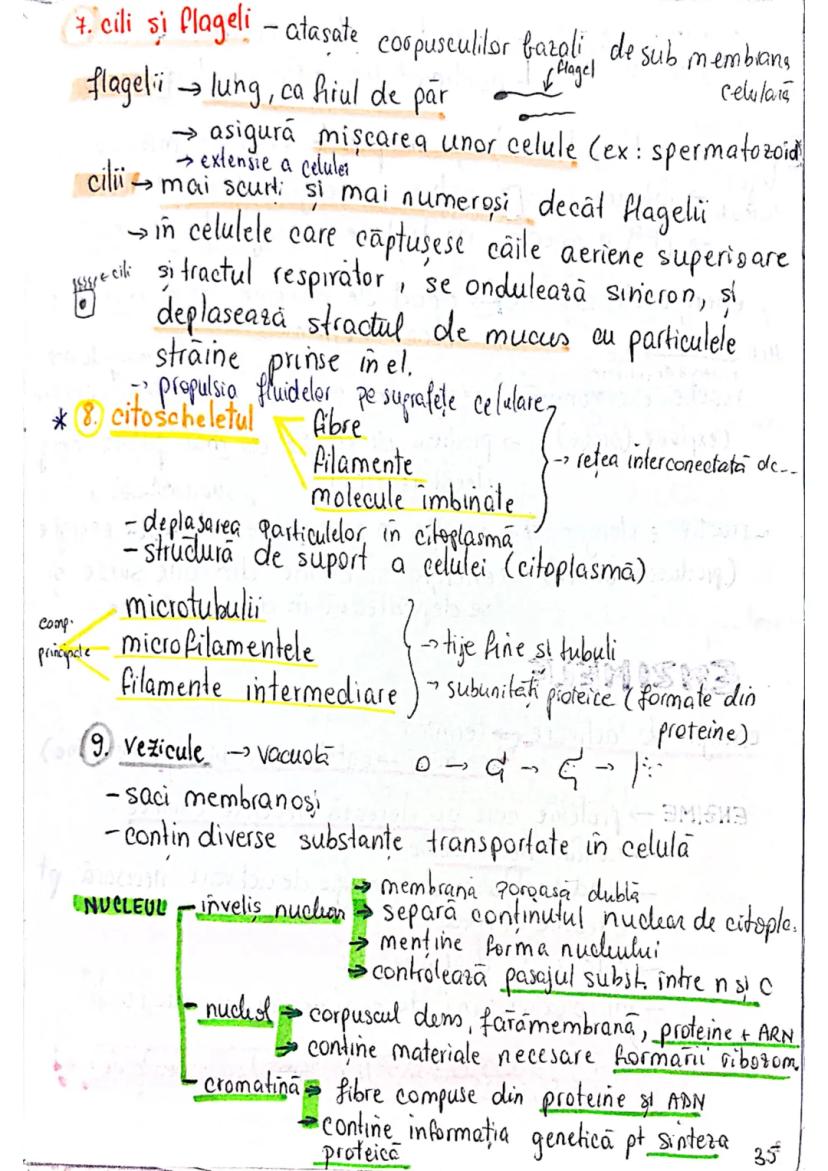 7. cili și flageli – atașate corpusculilor bazali de sub membrana celulară
flagel
flagelii → lung, ca firul de păr
→ asigură mișcarea unor celule (ex: spermatozoid
→ extensie a celulei
cilii → mai scurti și mai numeroși decât flagelii
→ în celulele care căptușesc căile aeriene superioare
cili
și tractul respirator, se ondulează sincron, și
deplasează stractul de mucus cu particulele
străine prinse în el.
→ propulsia fluidelor pe suprafețe celulare
* 8. citoscheletul
fibre
filamente
molecule îmbinate
→ rețea interconectată de...
– deplasarea particulelor în citoplasmă
– structură de suport a celulei (citoplasmă)
comp. principale
microtubulii
microfilamentele
filamente intermediare
→ tije fine și tubuli
→ subunități proteice (formate din proteine)
9. vezicule → vacuolă
– saci membranoși
– conțin diverse substanțe transportate în celulă
NUCLEUL – înveliș nuclear → membrana poroasă dublă
→ separă conținutul nuclear de citopla.
→ mentine forma nucleului
→ controlează pasajul subst. între n și C
– nucleol → corpuscul dens, fără membrană, proteine + ARN
→ conține materiale necesare formării ribozom
– cromatină → fibre compuse din proteine și ADN
→ conține informația genetică pt sinteza proteică
35